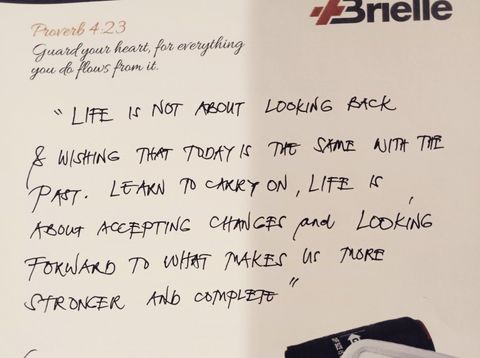 Brielle
Proverb 4:23
Guard your heart, for everything
you do flows from it.
"LIFE IS NOT ABOUT LOOKING BACK
& WISHING THAT TODAY IS THE SAME WITH THE
PAST. LEARN TO CARRY ON, LIFE IS
ABOUT ACCEPTING CHANGES and LOOKING
FORWARD TO WHAT MAKES US MORE
STRONGER AND COMPLETE"